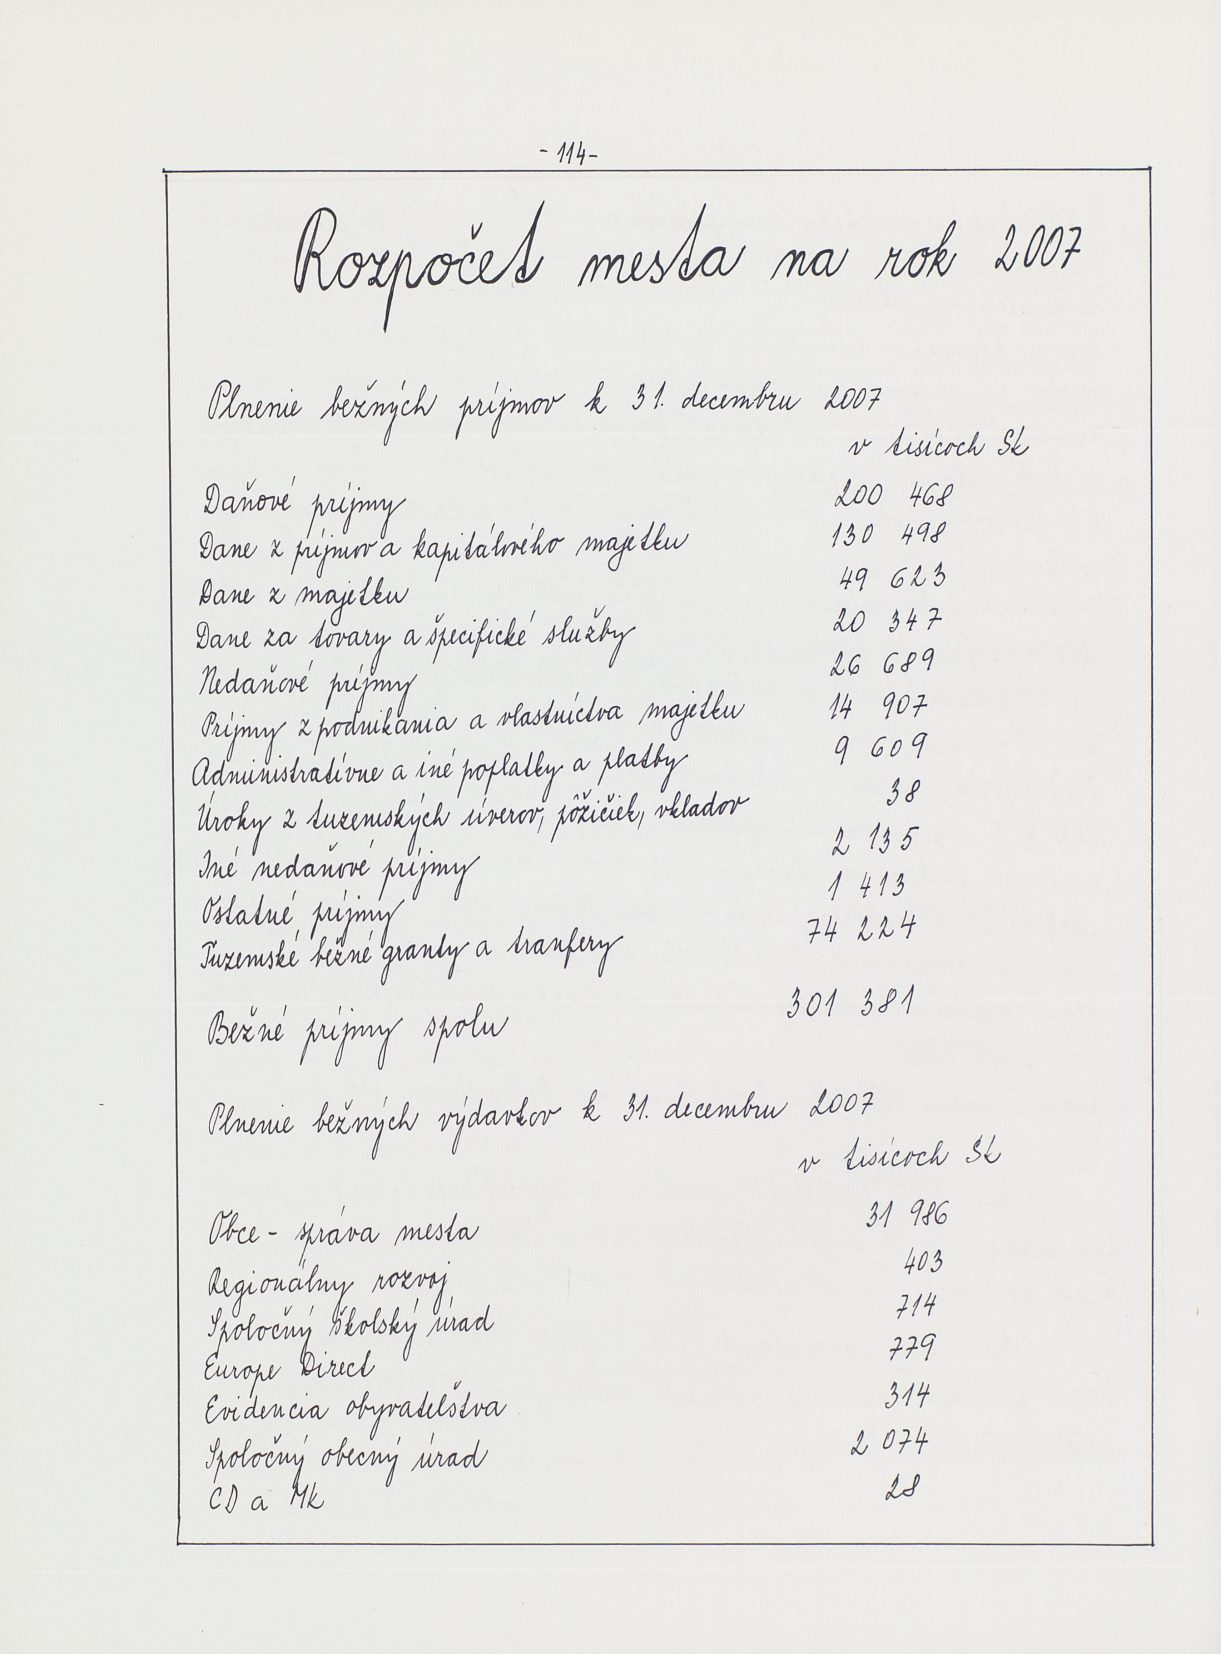 - 114-
Rozpočet mesta na rok 2007
Plnenie bežných príjmov k 31. decembru 2007
v tisícoch Sk
Daňové príjmy 200 468
Dane z príjmov a kapitálového majetku 130 498
Dane z majetku 49 623
Dane za tovary a špecifické služby 20 347
Nedaňové príjmy 26 689
Príjmy z podnikania a vlastníctva majetku 14 907
Administratívne a iné poplatky a platby 9 609
Úroky z tuzemských úverov, pôžičiek, vkladov 38
Iné nedaňové príjmy 2 135
Ostatné príjmy 1 413
Tuzemské bežné granty a tranfery 74 224
Bežné príjmy spolu 301 381
Plnenie bežných výdavkov k 31. decembru 2007
v tisícoch Sk
Obce - správa mesta 31 986
Regionálny rozvoj 403
Spoločný školský úrad 714
Europe Direct 779
Evidencia obyvateľstva 314
Spoločný obecný úrad 2 074
CD a Mk 28